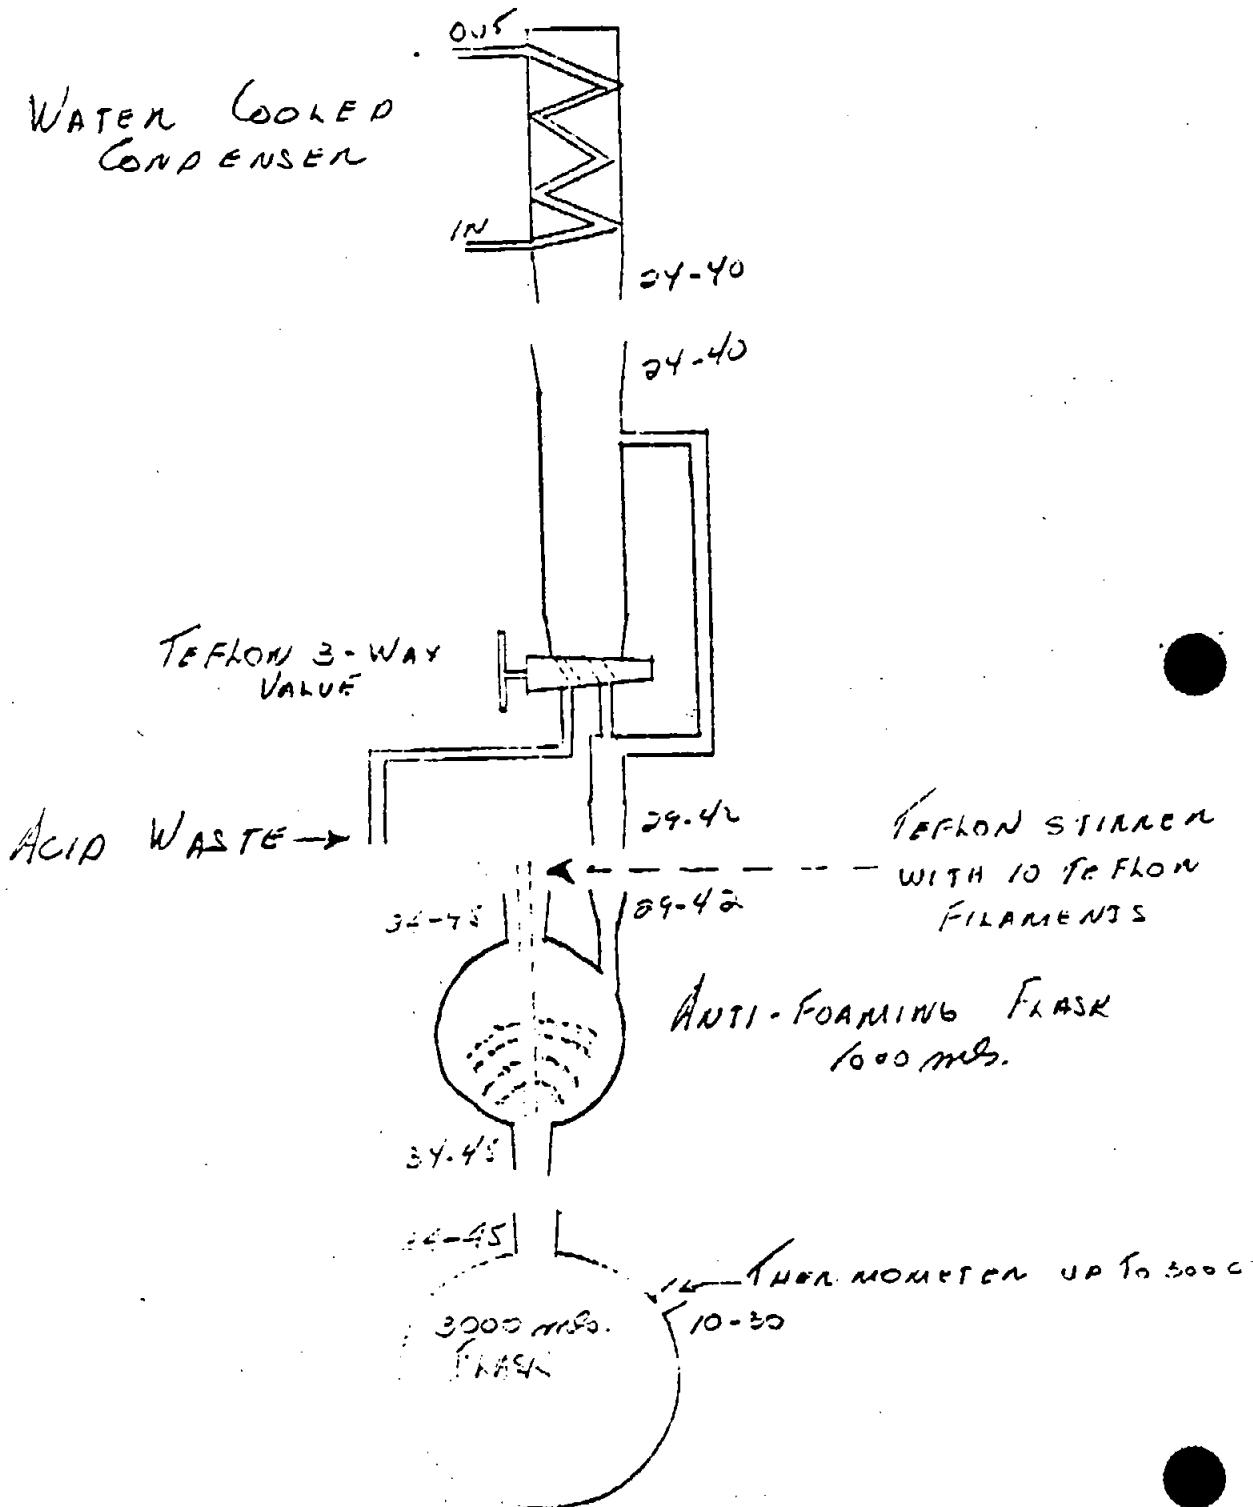 OUT
WATER COOLED
CONDENSER
IN
24-40
24-40
TEFLON 3-WAY
VALUE
ACID WASTE
29-42
TEFLON STIRRER
WITH 10 TEFLON
FILAMENTS
29-42
34-45
ANTI-FOAMING FLASK
1000 mls.
34-45
34-45
THERMOMETER UP TO 300 C
10-30
3000 mls.
FLASK